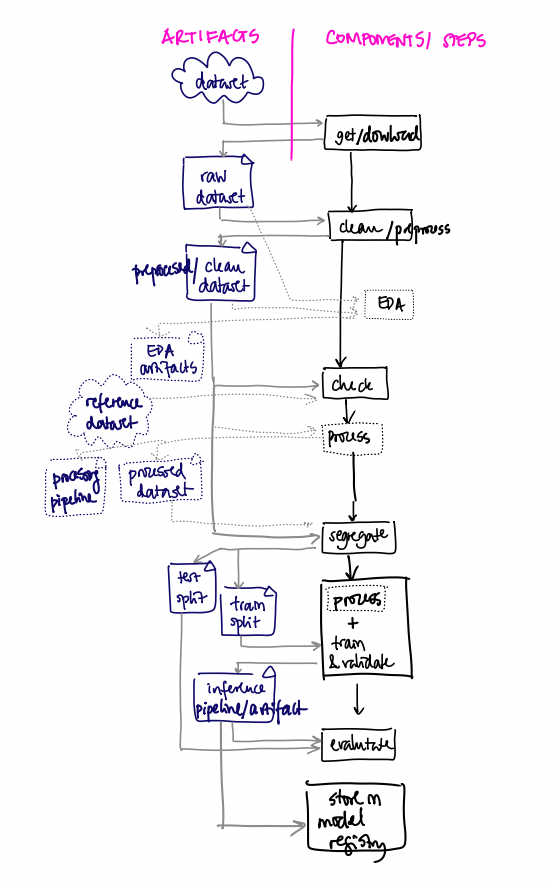 ARTIFACTS
COMPONENTS/ STEPS
dataset
get/dowload
raw
dataset
clean/preprocess
preprocessed/clean
dataset
EDA
EDA
artifacts
check
reference
dataset
process
processing
pipeline
processed
dataset
segregate
test
split
train
split
process
+
train
& validate
inference
pipeline/artifact
evalutate
store in
model
registry